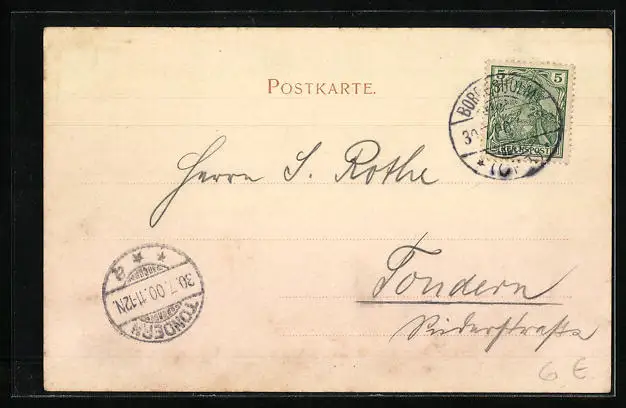 POSTKARTE.
5 5
REICHSPOST
BORDESHOLM
30
Herrn S. Rothe
Tondern
Süderstraße
TONDERN
30.7.00.11-12N.
* * a
6 E